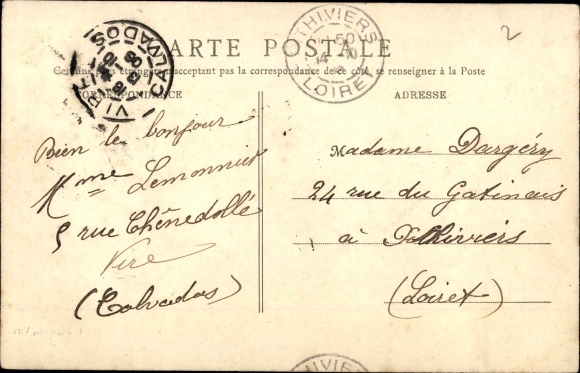 2
CARTE POSTALE
Certains pays étrangers n'acceptant pas la correspondance de ce côté, se renseigner à la Poste
CORRESPONDANCE
ADRESSE
VIRE
CALVADOS
PITHIVIERS
LOIRET
Bien le bonjour
Mme Lemonnier
5 rue Chênedollé
Vire
(Calvados)
Madame Dargéry
24 rue du Gatinais
à Pithiviers
(Loiret)